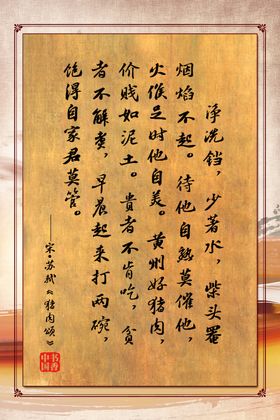 净洗铛，少著水，柴头罨
烟焰不起。待他自熟莫催他，
火候足时他自美。黄州好猪肉，
价贱如泥土。贵者不肯吃，贫
者不解煮，早晨起来打两碗，
饱得自家君莫管。
——宋·苏轼《猪肉颂》
书香
中国